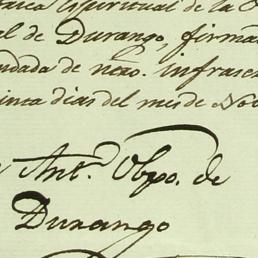 Espiritual de la
al de Durango, firma
dada de nṙo. infrasc
inta dias del mes de Nov
Ant.º Obpo. de
Durango